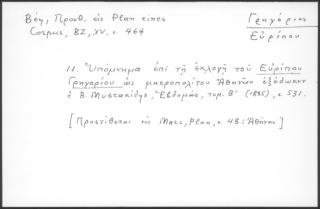 Βέη, Προσθ. εἰς Plan eines
Corpus, BZ, XV, σ. 464
Γρηγόριος
Εὐρίπου
11. Ὑπόμνημα ἐπὶ τῇ ἐκλογῇ τοῦ Εὐρίπου
Γρηγορίου ὡς μητροπολίτου Ἀθηνῶν ἐξέδωκεν
ὁ Β. Μυστακίδης, Ἑβδομάς, τομ. Β' (1885), σ 531.
[Προστίθεται εἰς Marc, Plan, σ 48: Ἀθῆναι]